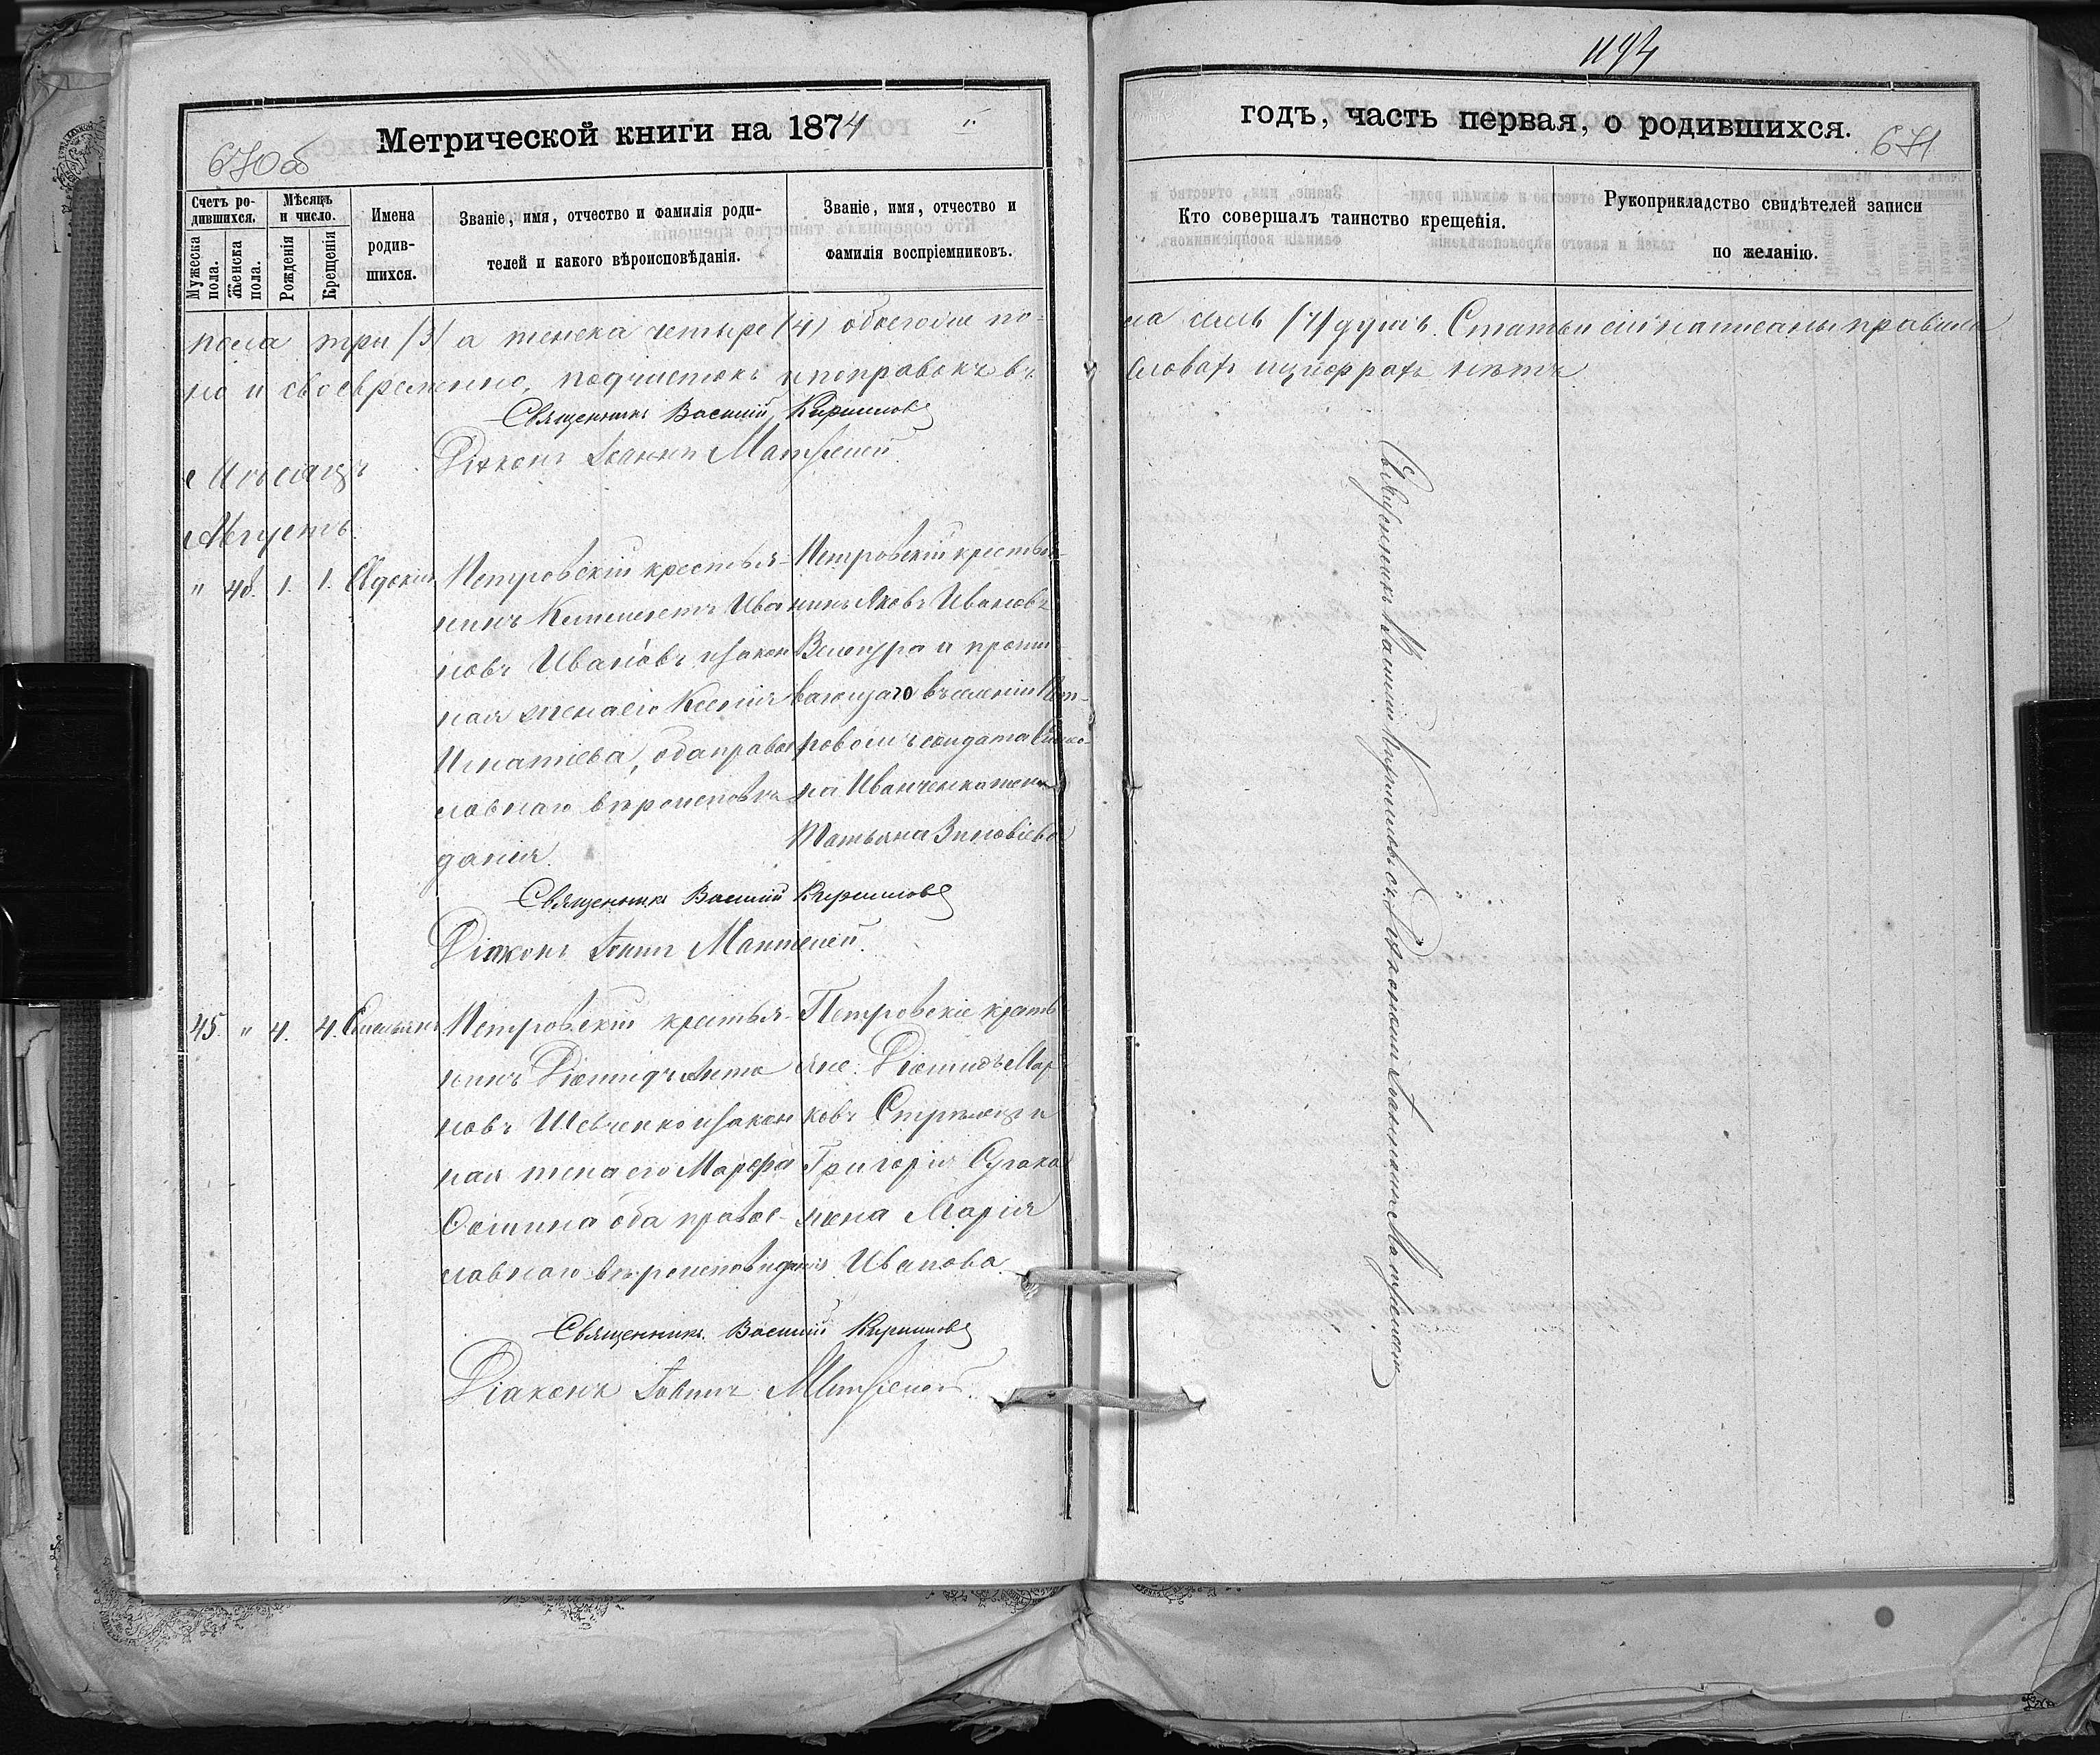 1194
Метрической книги на 1874
670об
годъ, часть первая, о родившихся.
671
Счетъ ро-
дившихся.
Мужеска
пола.
Женска
пола.
Мѣсяцъ
и число.
Рожденія
Крещенія
Имена
родив-
шихся.
Званіе, имя, отчество и фамилія роди-
телей и какого вѣроисповѣданія.
Званіе, имя, отчество и
фамилія воспріемниковъ.
Кто совершалъ таинство крещенія.
Рукоприкладство свидѣтелей записи
по желанію.
пола три /3/ а женска четыре (4) обоегоже по-
ла семь /7/ душъ. Статьи сіи написаны правиль
но и своевременно, подчистокъ и поправокъ въ
словахъ и цифрахъ нѣтъ
Священникъ Василій Кириловъ
Діаконъ Іоаннъ Матѳеіей
Мѣсяцъ
Августъ
" 48. 1. 1.
Петровскій крестья-
нинъ Климентъ Ива
новъ Ивановъ и закон
ная жена его Ксенія
Игнатіева, оба право
славнаго вѣроисповѣ
данія.
Петровскій крестья-
нинъ Яковъ Ивановъ
и прожи
вающаго въ селеніи Пет-
ровомъ солдата
на Иванченка жена
Татьяна Зиновіева
Священникъ Василій Кириловъ
Діаконъ
45. " 4. 4. Емельянъ
Петровскій крестья-
нинъ Діомидъ Анто
новъ Шевченко и закон
ная жена его Марфа
Фомина оба правос-
лавнаго вѣроисповѣданія
Петровскіе кресть
яне: Діомидъ Мар
ковъ Стрѣлецъ и
Григорія
жена Марія
Иванова
Священникъ Василій Кириловъ
Діаконъ
Священникъ Василій Кириловъ съ Діакономъ Іоанномъ